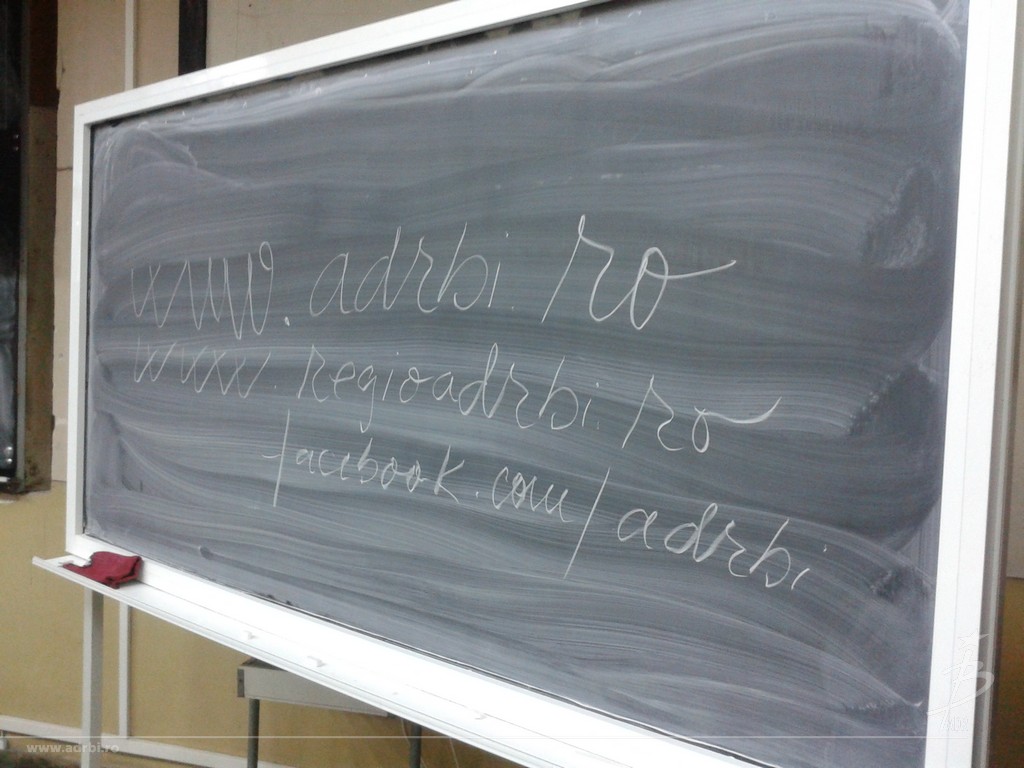 www.adrbi.ro
www.regioadrbi.ro
facebook.com/adrbi
www.adrbi.ro